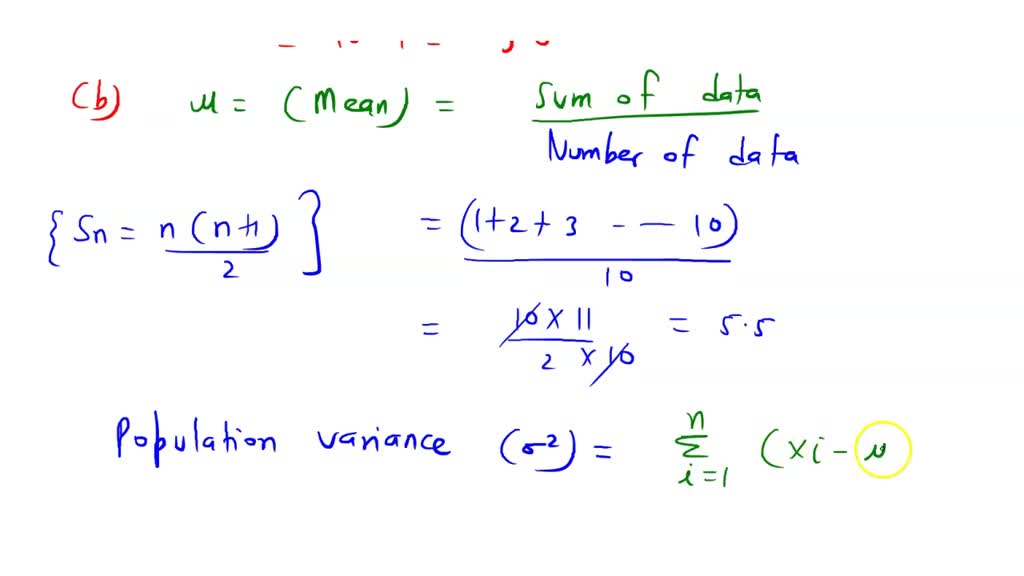 (b) μ = (Mean) = Sum of data / Number of data
{ Sn = n(n+1) / 2 } = (1+2+3 - — 10) / 10
= 10 × 11 / 2 × 10 = 5.5
Population variance (σ²) = n Σ i=1 (xi - μ